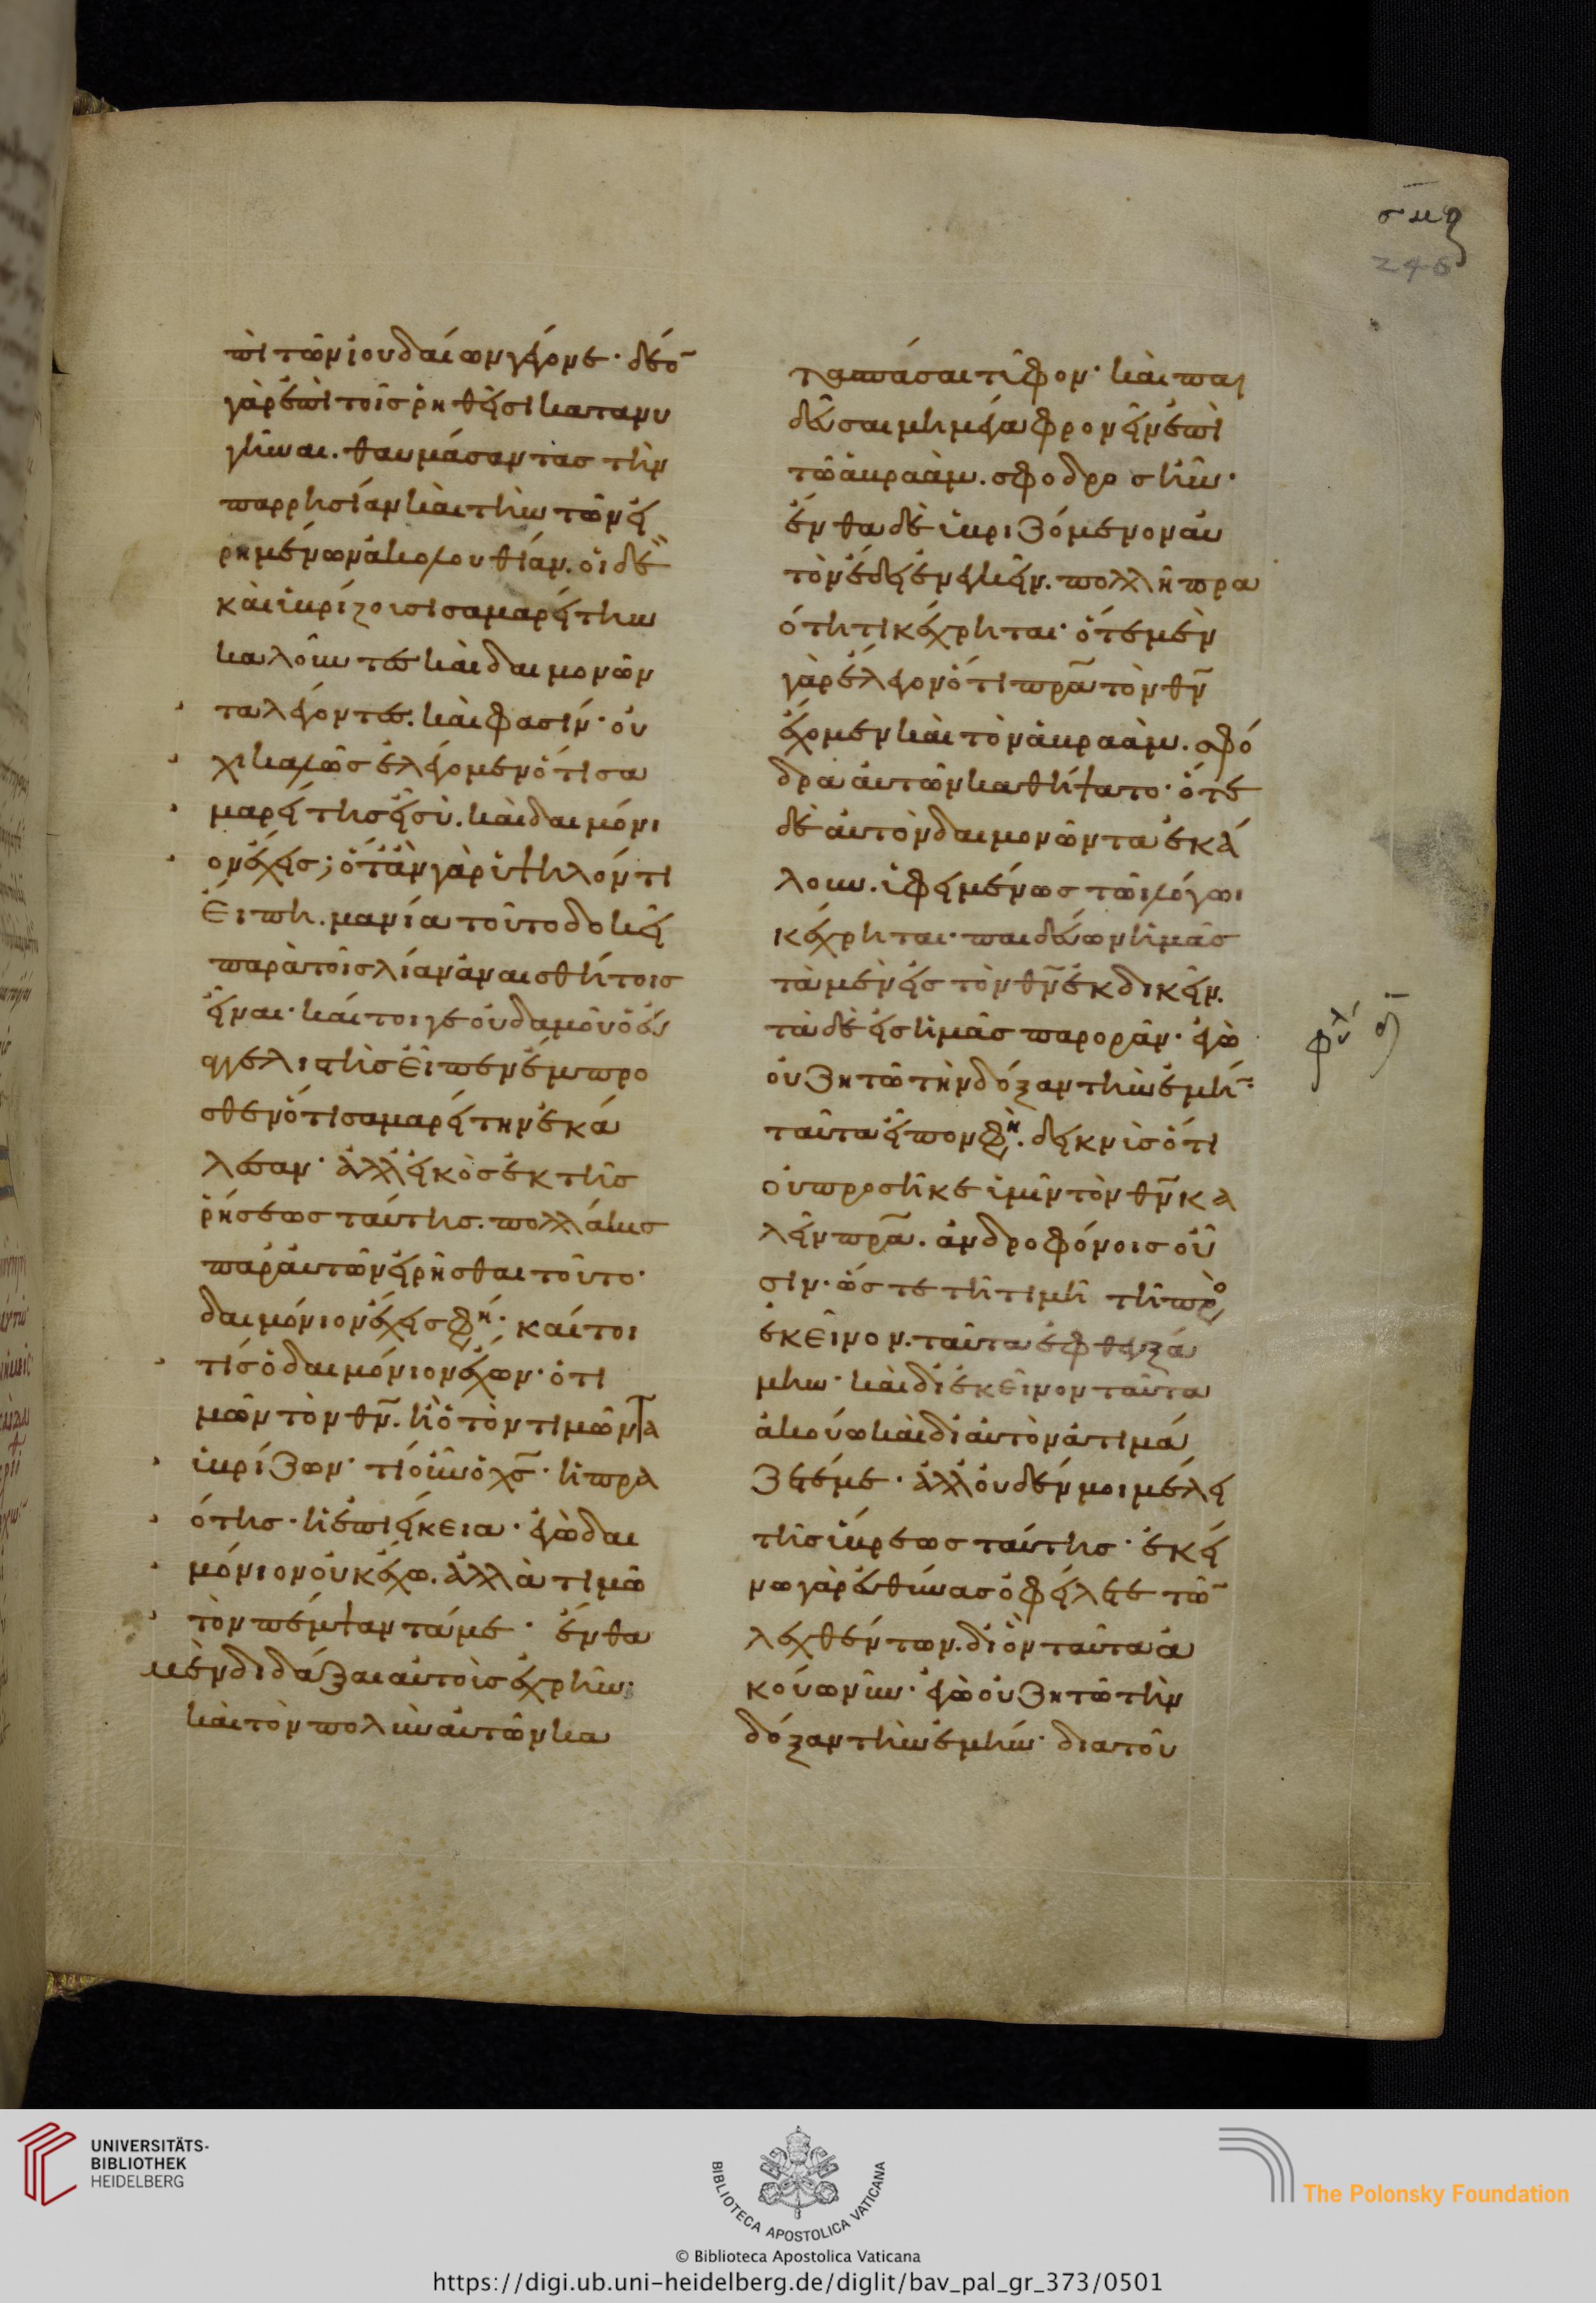 σμϛ
246
πὶ τῶν ἰουδαίων γέγονε· δέο̄
γὰρ ἐπὶ τοῖς ῥηθεῖσι κατανυ
γῆναι. θαυμάσαντας τὴν
παρρησίαν καὶ τὴν τῶν εἰ
ρημένων ἀκολουθίαν. οἱ δὲ
καὶ ὑβρίζουσι σαμαρείτην
καλοῦντες καὶ δαιμονῶν
τα λέγοντες. καὶ φασίν· οὐ
χὶ καλῶς ἐλέγομεν ὅτι σα
μαρείτης εἶ σὺ. καὶ δαιμόνι
ον ἔχεις; ὅτὰν γὰρ ὑψηλόν τι
εἴπη. μανία τοῦτο δοκεῖ
παρὰ τοῖς λίαν ἀναισθήτοις
εἶναι· καίτοιγε οὐδαμοῦ ὁ εὐ
αγγελιστὴς εἶπεν ἔμπρο
σθεν ὅτι σαμαρείτην ἐκά
λεσαν· ἀλλ εἰκὸς ἐκ τῆς
ῥήσεως ταύτης. πολλάκις
παρ' αὐτῶν εἰρῆσθαι τοῦτο·
δαιμόνιον ἔχεις φη· καίτοι
τίς ὁ δαιμόνιον ἔχων· ὁ τι
μῶν τὸν θν̄. ἢ ὁ τὸν τιμῶντα
ὑβρίζων· τί οὖν ὁ χσ̄· ἡ πρα
ότης· ἡ ἐπιείκεια· ἐγὼ δαι
μόνιον οὐκ ἔχω. ἀλλὰ τιμῶ
τὸν πέμψαντά με· ἔνθα
μὲν διδάξαι αὐτοὺς ἐχρῆν·
καὶ τὸν πολὺν αὐτῶν κα
τασπάσαι τῦφον· καὶ παι
δεῦσαι μὴ μέγα φρονεῖν ἐπὶ
τῶ ἀβραάμ. σφοδρὸς ἦν·
ἔνθα δὲ ὑβριζόμενον αὐ
τὸν ἔδει ἐνεγκεῖν. πολλῆ πρα
ότητι κέχρηται· ὅτε μὲν
γὰρ ἔλεγον ὅτι πρ̄α τὸν θν̄
ἔχομεν καὶ τὸν ἀβραάμ. σφό
δρα αὐτῶν καθήψατο· ὅτε
δὲ αὐτὸν δαιμονῶντα ἐκά
λουν. ὑφειμένως τῶι λόγωι
κέχρηται· παιδεύων ἡμᾶς
τὰ μὲν εἰς τὸν θν̄ ἐκδικεῖν.
τὰ δὲ εἰς ἡμᾶς παρορᾶν· ἐγὼ
οὐ ζητῶ τὴν δόξαν τὴν ἐμή̄·
ταῦτα εἶπον φη. δεικνὺς ὅτι
οὐ προσῆκε ὑμῖν τὸν θν̄ κα
λεῖν πρ̄α. ἀνδροφόνοις οὖ
σιν· ὥστε τῆ τιμῆ τῆ πρὸ
ἐκεῖνον. ταῦτα ἐφθεγξά
μην· καὶ δι' ἐκεῖνον ταῦτα
ἀκούω καὶ δι' αὐτὸν ἀτιμά
ζετέ με· ἀλλ' οὐδέν μοι μέλει
τῆς ὕβρεως ταύτης· ἐκεί
νω γὰρ εὐθύνας ὀφείλετε τῶ̄
λεχθέντων. δι' ὃν ταῦτα ἀ
κούω νῦν· ἐγὼ οὐ ζητῶ τὴν
δόξαν τὴν ἐμήν· διατοῦ
UNIVERSITÄTS-
BIBLIOTHEK
HEIDELBERG
BIBLIOTECA APOSTOLICA VATICANA
The Polonsky Foundation
© Biblioteca Apostolica Vaticana
https://digi.ub.uni-heidelberg.de/diglit/bav_pal_gr_373/0501